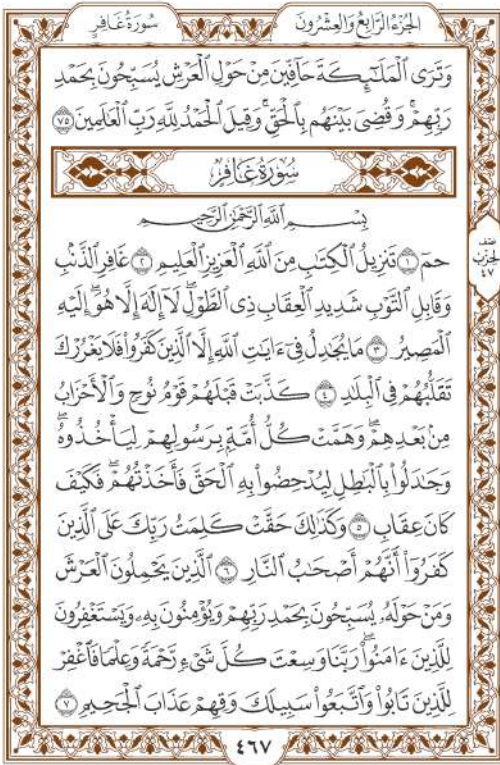 سُورَةُ غَافِرٍ
الجُزْءُ الرَّابِعُ وَالعِشْرُونَ
وَتَرَى ٱلْمَلَٰٓئِكَةَ حَآفِّينَ مِنْ حَوْلِ ٱلْعَرْشِ يُسَبِّحُونَ بِحَمْدِ
رَبِّهِمْۖ وَقُضِىَ بَيْنَهُم بِٱلْحَقِّۚ وَقِيلَ ٱلْحَمْدُ لِلَّهِ رَبِّ ٱلْعَٰلَمِينَ ٧٥
سُورَةُ غَافِرٍ
بِسْمِ ٱللَّهِ ٱلرَّحْمَٰنِ ٱلرَّحِيمِ
حمٓ ١ تَنزِيلُ ٱلْكِتَٰبِ مِنَ ٱللَّهِ ٱلْعَزِيزِ ٱلْعَلِيمِ ٢ غَافِرِ ٱلذَّنۢبِ
وَقَابِلِ ٱلتَّوْبِ شَدِيدِ ٱلْعِقَابِ ذِى ٱلطَّوْلِۖ لَآ إِلَٰهَ إِلَّا هُوَۖ إِلَيْهِ
ٱلْمَصِيرُ ٣ مَا يُجَٰدِلُ فِىٓ ءَايَٰتِ ٱللَّهِ إِلَّا ٱلَّذِينَ كَفَرُوا۟ فَلَا يَغْرُرْكَ
تَقَلُّبُهُمْ فِى ٱلْبِلَٰدِ ٤ كَذَّبَتْ قَبْلَهُمْ قَوْمُ نُوحٍ وَٱلْأَحْزَابُ
مِنۢ بَعْدِهِمْۖ وَهَمَّتْ كُلُّ أُمَّةٍۭ بِرَسُولِهِمْ لِيَأْخُذُوهُۖ
وَجَٰدَلُوا۟ بِٱلْبَٰطِلِ لِيُدْحِضُوا۟ بِهِ ٱلْحَقَّ فَأَخَذْتُهُمْۖ فَكَيْفَ
كَانَ عِقَابِ ٥ وَكَذَٰلِكَ حَقَّتْ كَلِمَتُ رَبِّكَ عَلَى ٱلَّذِينَ
كَفَرُوٓا۟ أَنَّهُمْ أَصْحَٰبُ ٱلنَّارِ ٦ ٱلَّذِينَ يَحْمِلُونَ ٱلْعَرْشَ
وَمَنْ حَوْلَهُۥ يُسَبِّحُونَ بِحَمْدِ رَبِّهِمْ وَيُؤْمِنُونَ بِهِۦ وَيَسْتَغْفِرُونَ
لِلَّذِينَ ءَامَنُوا۟ۖ رَبَّنَا وَسِعْتَ كُلَّ شَىْءٍ رَّحْمَةً وَعِلْمًا فَٱغْفِرْ
لِلَّذِينَ تَابُوا۟ وَٱتَّبَعُوا۟ سَبِيلَكَ وَقِهِمْ عَذَابَ ٱلْجَحِيمِ ٧
نصف
الحزب
٤٧
٤٦٧